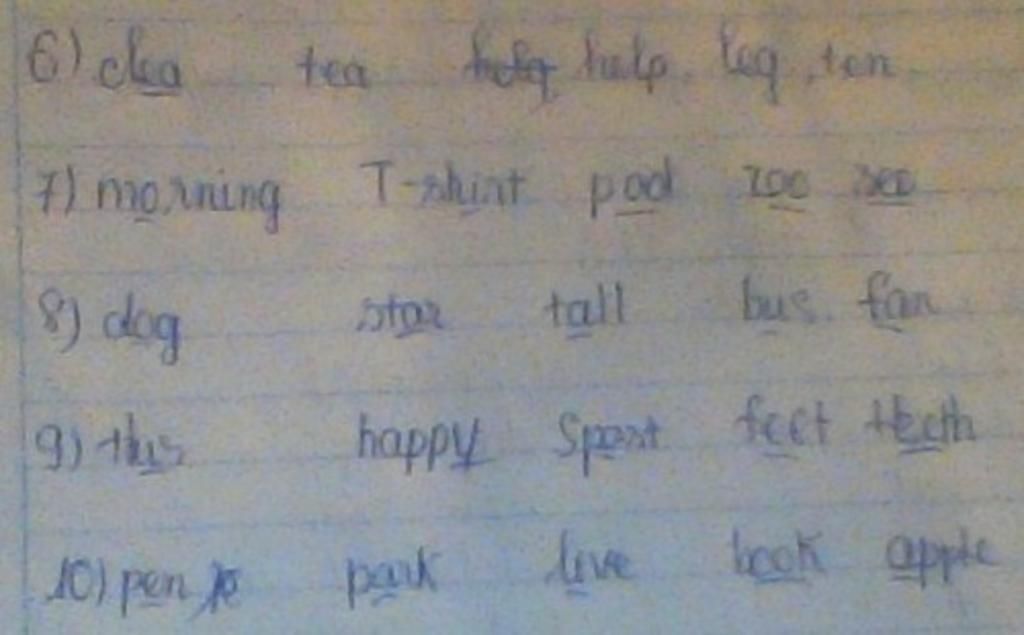 6) clea tea help. leg, ten
7) morning T-shirt pool zoo
8) dog star tall bus. fan
9) this happy Sport feet teeth
10) pen park live book apple